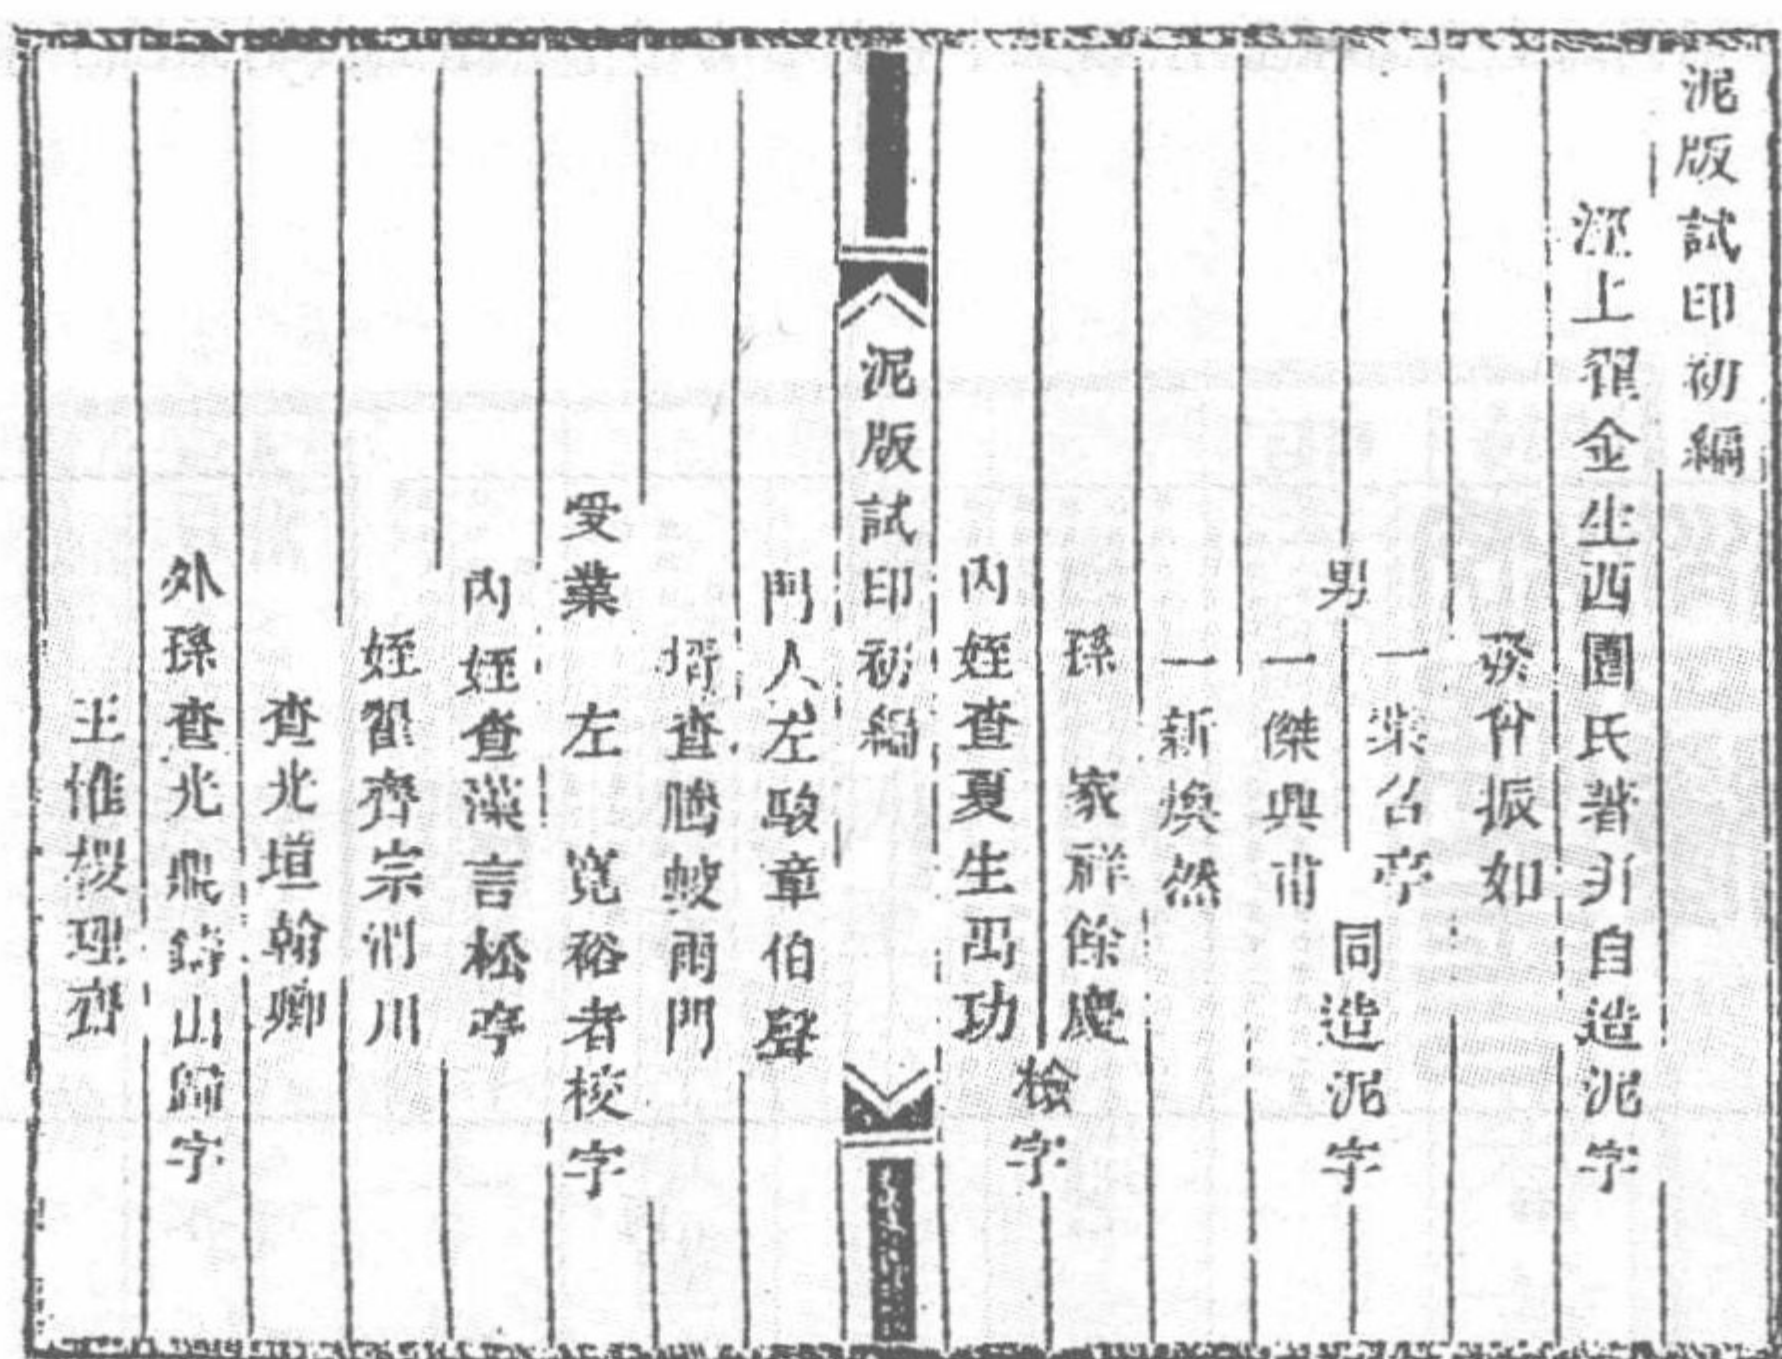 泥版試印初編
涇上翟金生西園氏著并自造泥字
發伢振如
一棠召亭
男 同造泥字
一傑興甫
一新煥然
孫 家祥餘慶
檢字
內姪查夏生禹功
泥版試印初編
門人左駿章伯聲
壻查騰蛟雨門
受業 左 寬裕者校字
內姪查藻言松亭
姪翟齊宗潤川
查光垣翰卿
外孫查光鼎鑄山歸字
王惟 理齋